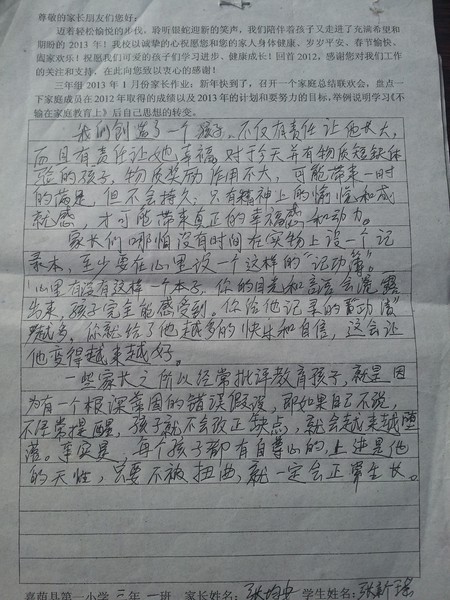 尊敬的家长朋友们您好：
迈着轻松愉悦的步伐、聆听银蛇迎新的笑声，我们陪伴着孩子又走进了充满希望和
期盼的 2013 年！我校以诚挚的心祝愿您和您的家人身体健康、岁岁平安、春节愉快、
阖家欢乐！祝愿我们可爱的孩子们学习进步、健康成长！回首 2012，感谢您对我们工作
的关注和支持，在此向您致以衷心的感谢！
三年组 2013 年 1 月份家长作业：新年快到了，召开一个家庭总结联欢会，盘点一
下家庭成员在 2012 年取得的成绩以及 2013 年的计划和要努力的目标，举例说明学习《不
输在家庭教育上》后自己思想的转变。
我们创造了一个孩子，不仅有责任让他长大，
而且有责任让她幸福。对于今天并有物质短缺体
验的孩子，物质奖励作用不大，可能带来一时
的满足，但不会持久，只有精神上的愉悦和成
就感，才可能带来真正的幸福感和动力。
家长们哪怕没有时间在实物上设一个记
录本，至少要在心里设一个这样的“记功簿”。
心里有没有这样一个本子，你的目光和言语会流露
出来，孩子完全能感受到。你给他记录的“功绩”
越多，你就给了他越多的快乐和自信，这会让
他变得越来越好。
一些家长之所以经常批评教育孩子，就是因
为有一个根深蒂固的错误假设，即如果自己不说，
不经常提醒，孩子就不会改正缺点，就会越来越堕
落。事实是，每个孩子都有自尊心的，上进是他
的天性，只要不被扭曲，就一定会正常生长。
嘉荫县第一小学 三 年 一 班 家长姓名： 张均安 学生姓名：张新瑶